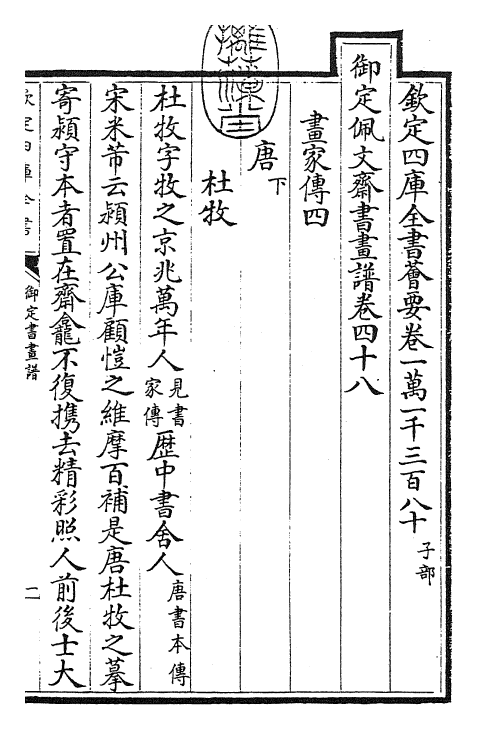 欽定四庫全書薈要卷一萬一千三百八十 子部
御定佩文齋書畫譜卷四十八
畫家傳四
唐 下
杜牧
杜牧字牧之京兆萬年人 見書家傳 歴中書舍人 唐書本傳
宋米芾云潁州公庫顧愷之維摩百補是唐杜牧之摹
寄潁守本者置在齋龕不復携去精彩照人前後士大
欽定四庫全書
御定書畫譜
一